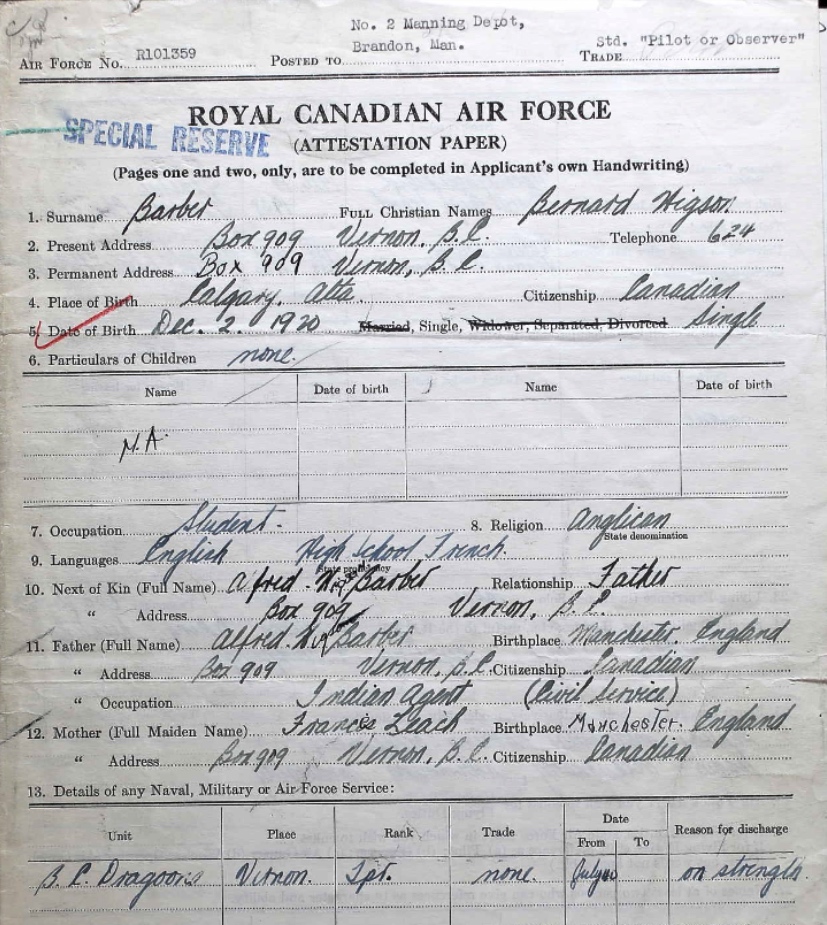 No. 2 Manning Depot,
AIR FORCE NO. R101359 POSTED TO Brandon, Man. Std. "Pilot or Observer" TRADE
ROYAL CANADIAN AIR FORCE
SPECIAL RESERVE (ATTESTATION PAPER)
(Pages one and two, only, are to be completed in Applicant's own Handwriting)
1. Surname Barber FULL Christian Names Bernard Higson
2. Present Address Box 909 Vernon, B.C. Telephone 624
3. Permanent Address Box 909 Vernon, B.C.
4. Place of Birth Calgary, Alta. Citizenship Canadian
5. Date of Birth Dec. 2. 1920 Married, Single, Widower, Separated, Divorced Single
6. Particulars of Children none.
Name Date of birth Name Date of birth
N.A.
7. Occupation Student. 8. Religion Anglican
State denomination
9. Languages English High School French.
State proficiency
10. Next of Kin (Full Name) Alfred Barber Relationship Father
" Address Box 909 Vernon, B.C.
11. Father (Full Name) Alfred Barber Birthplace Manchester. England
" Address Box 909 Vernon, B.C. Citizenship Canadian
" Occupation Indian Agent (Civil Service)
12. Mother (Full Maiden Name) Frances Leach Birthplace Manchester. England
" Address Box 909 Vernon, B.C. Citizenship Canadian
13. Details of any Naval, Military or Air Force Service:
Unit Place Rank Trade Date Reason for discharge
From To
B.C. Dragoons Vernon. Tpr. none. July on strength.